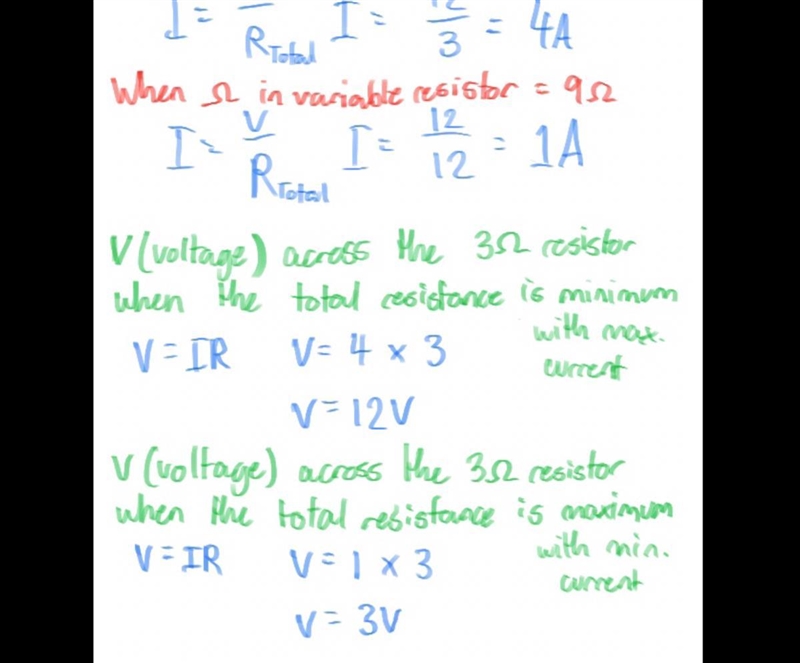 I = R_Total I = 12/3 = 4A
When Ω in variable resistor = 9Ω
I = V/R_Total I = 12/12 = 1A
V (voltage) across the 3Ω resistor
when the total resistance is minimum
with max.
current
V = IR V = 4 × 3
V = 12V
V (voltage) across the 3Ω resistor
when the total resistance is maximum
with min.
current
V = IR V = 1 × 3
V = 3V